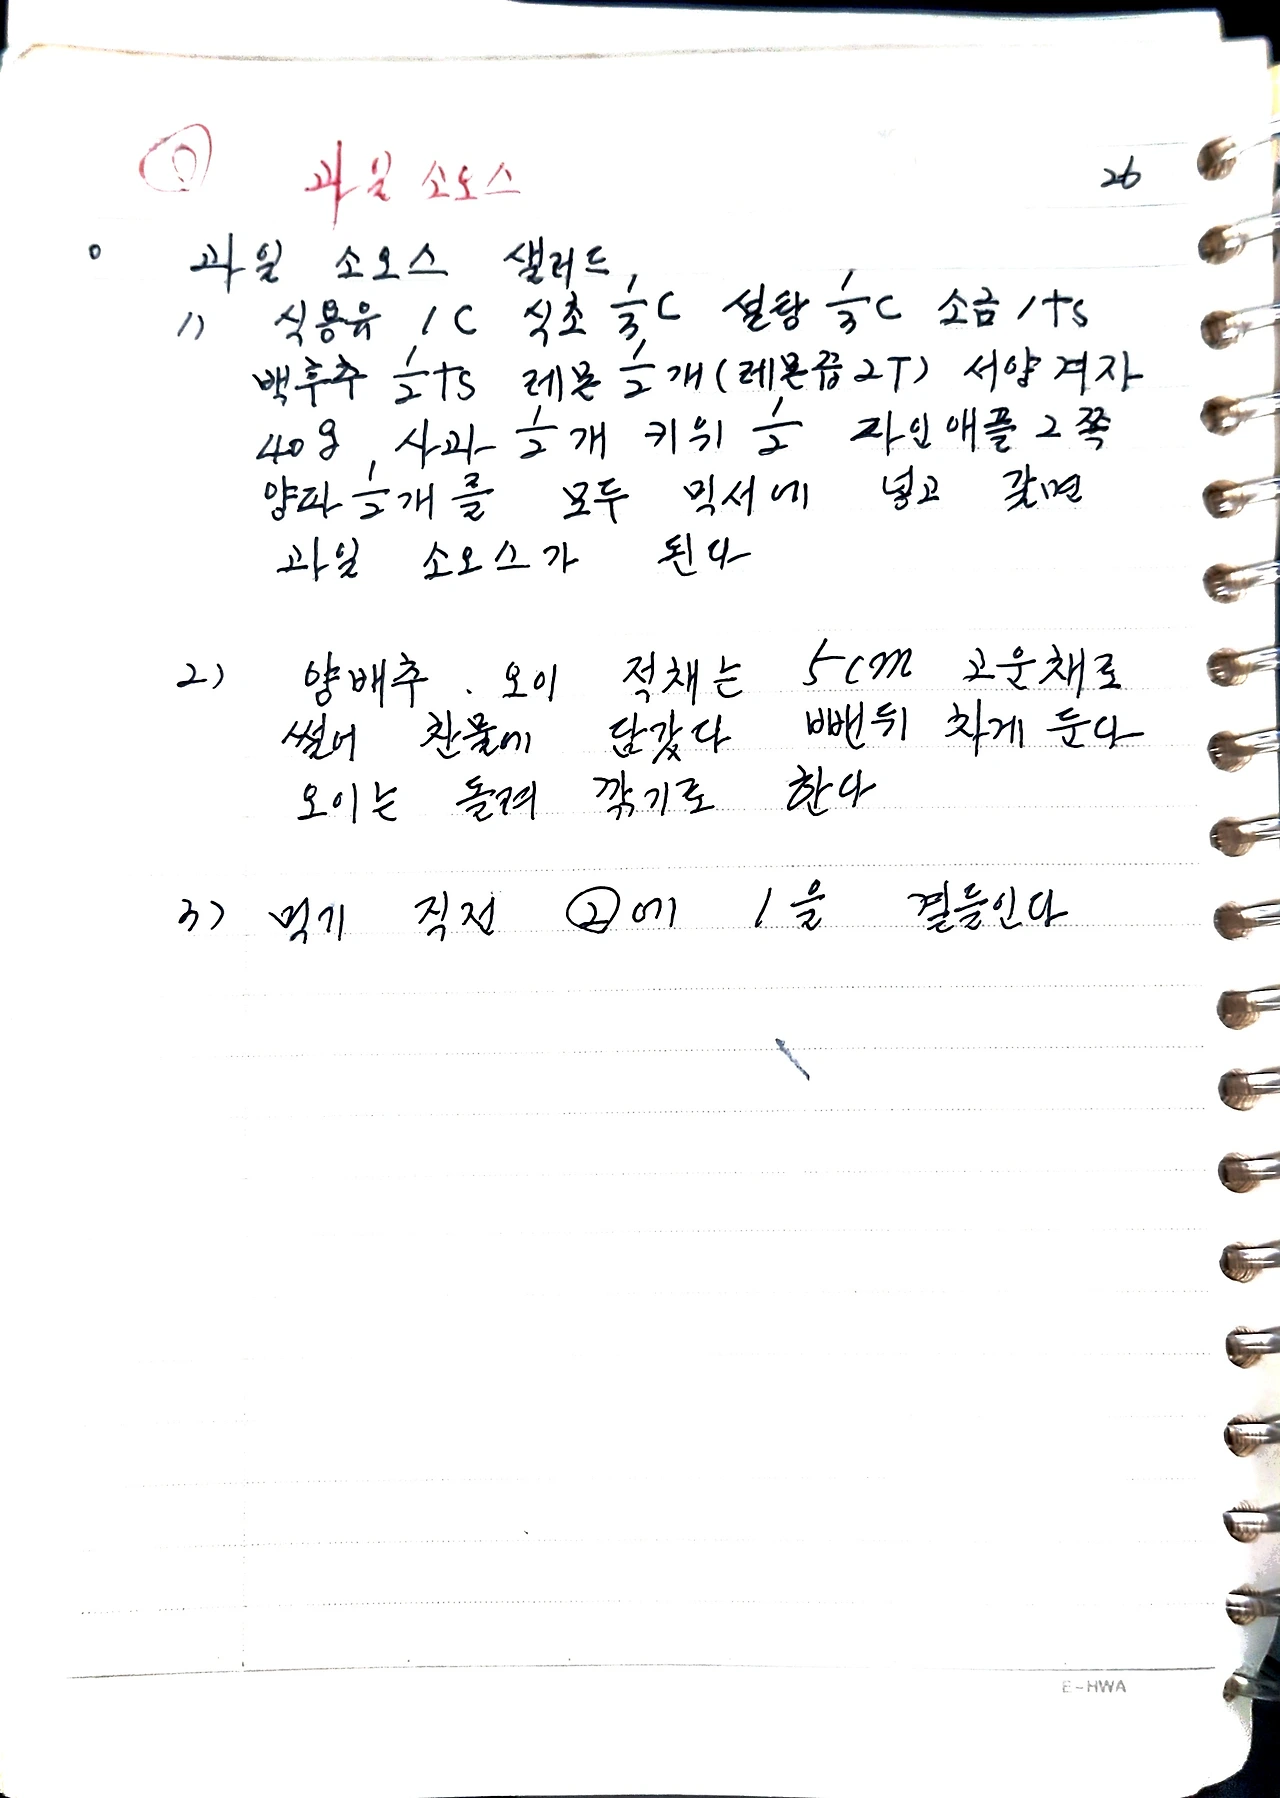 과일 소오스
26
o 과일 소오스 샐러드
1) 식용유 1C 식초 1/3C 설탕 1/3C 소금 1ts
백후추 1/2ts 레몬 1/2개(레몬즙2T) 서양겨자
40g, 사과 1/2개 키위 1/2 파인애플 2쪽
양파 1/2개를 모두 믹서에 넣고 갈면
과일 소오스가 된다
2) 양배추 . 오이 적채는 5cm 고운채로
썰어 찬물에 담갔다 뺀뒤 차게 둔다
오이는 돌려 깎기로 한다
3) 먹기 직전 ②에 1을 곁들인다
E-HWA